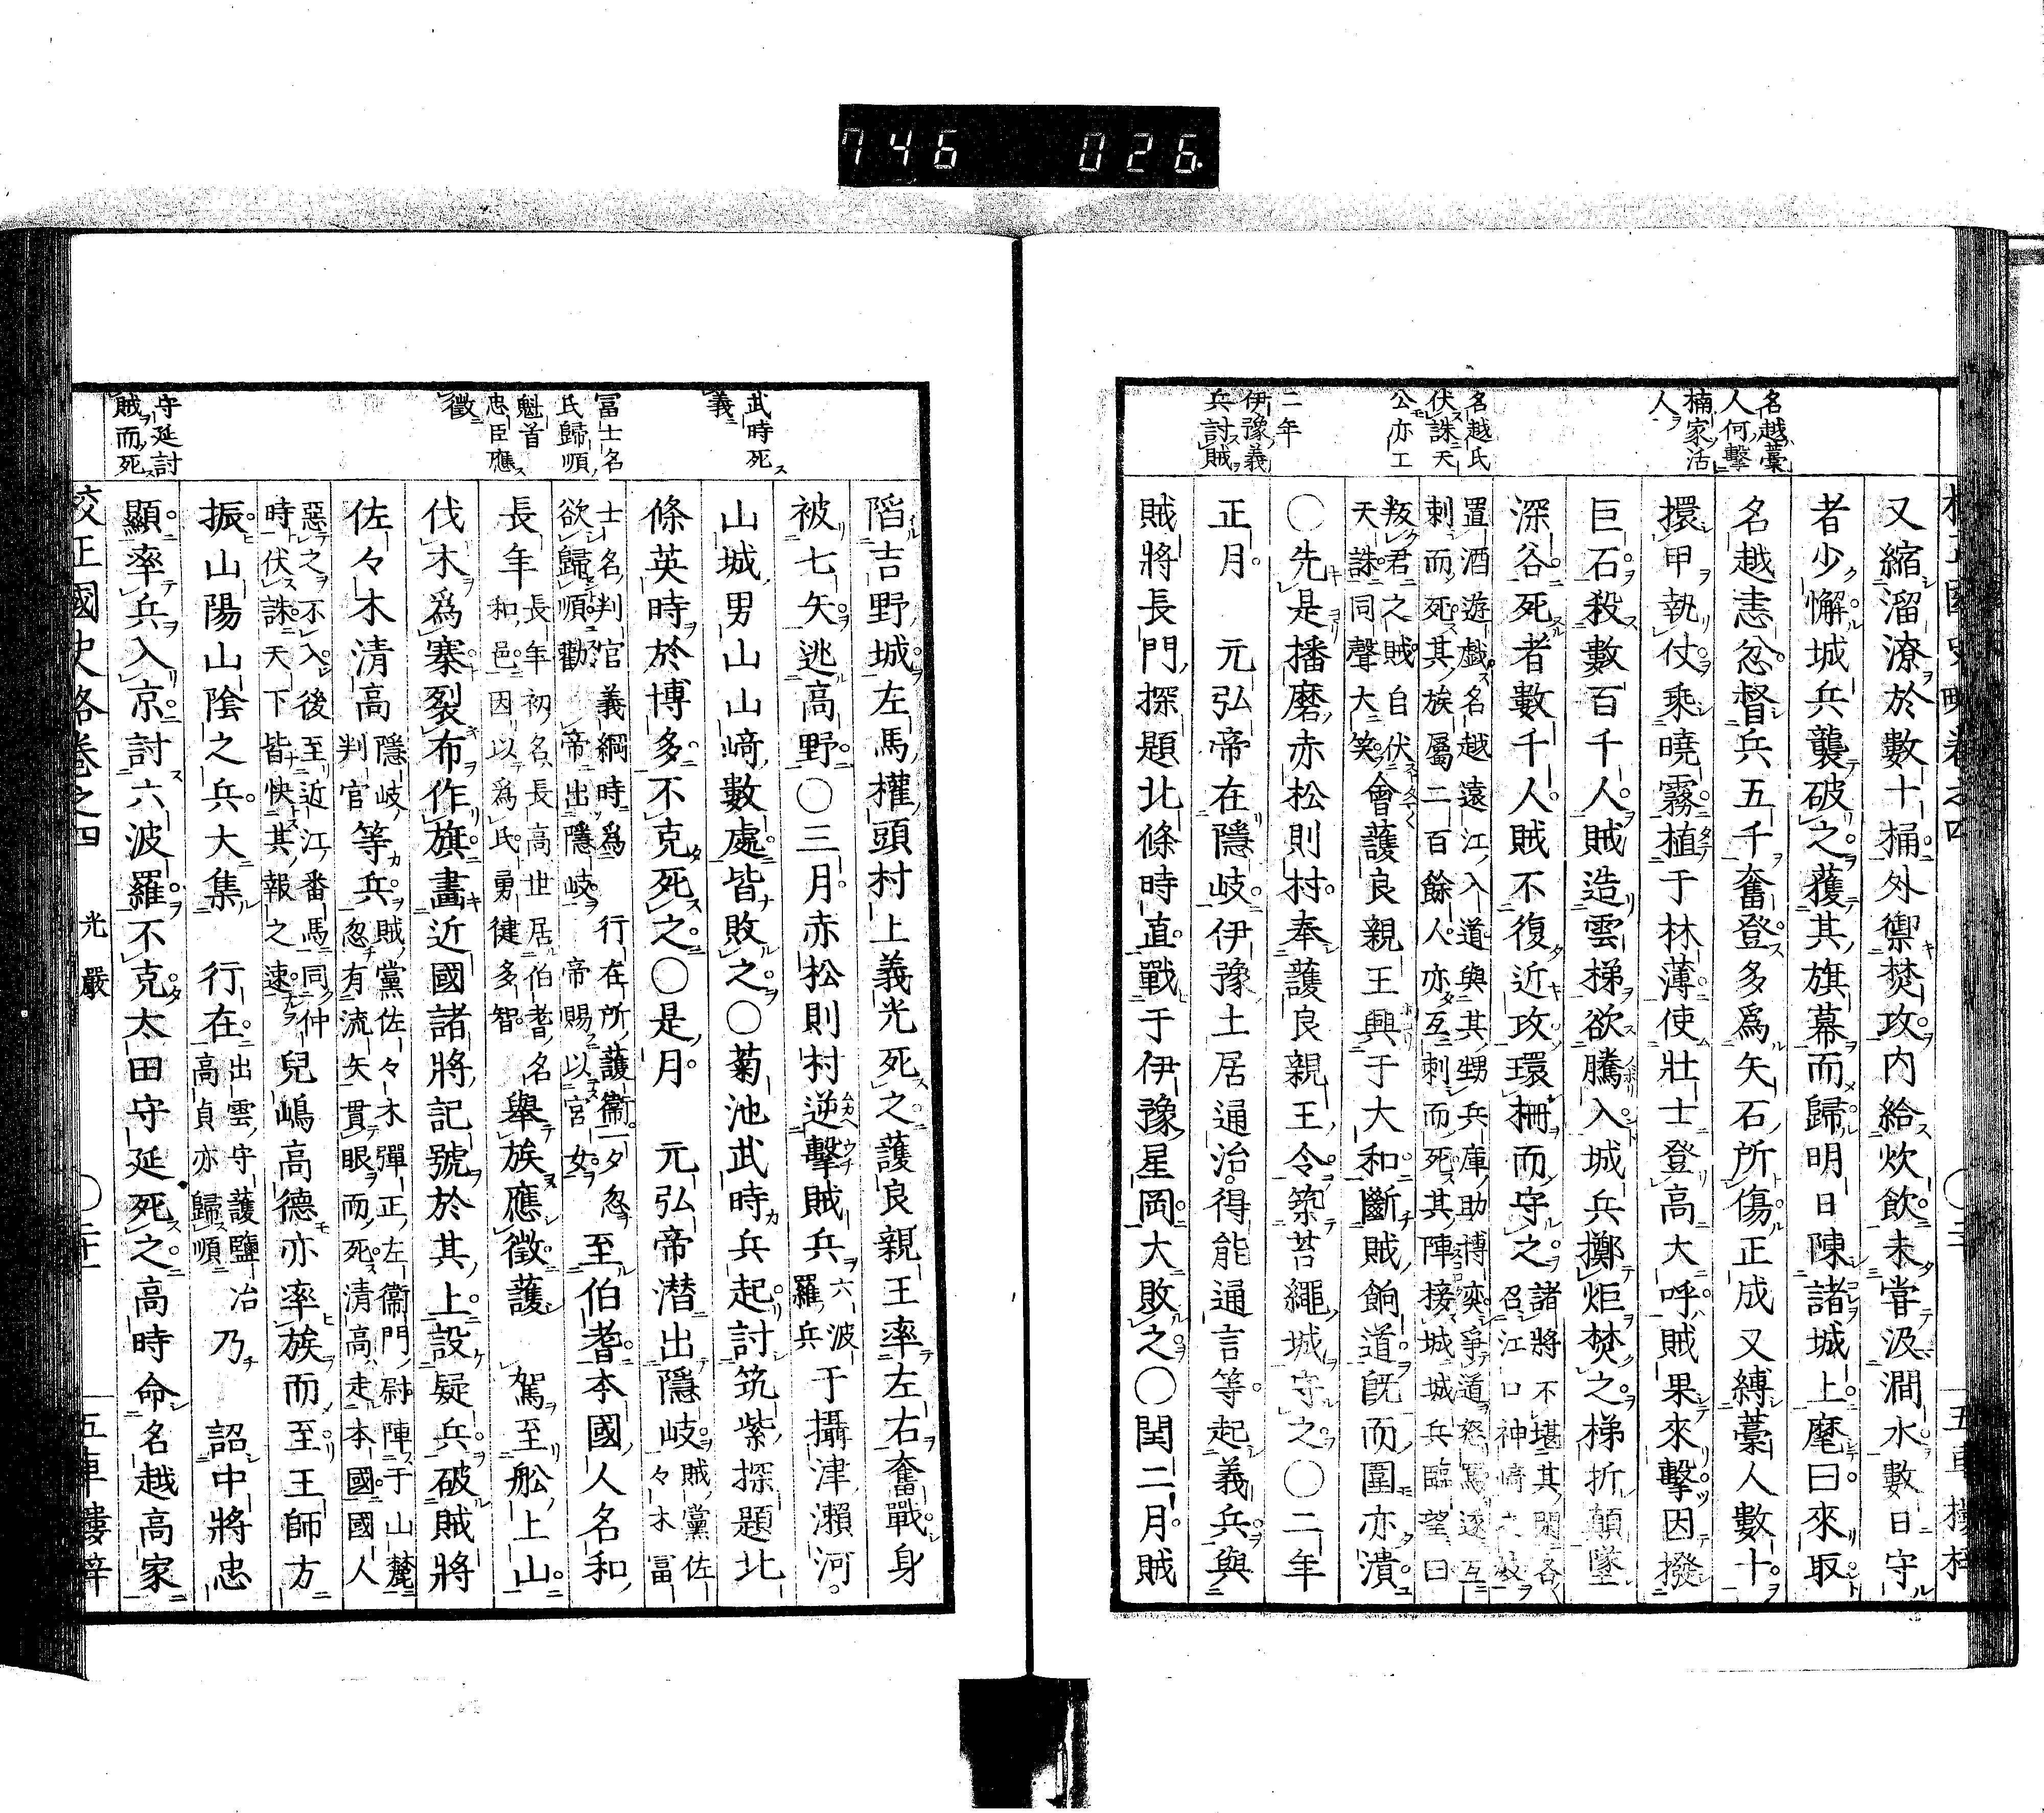 746 026
又縮溜潦於數十桶外禦焚攻內給炊飲未甞汲澗水數日守
者少懈城兵襲破之獲其旗幕而歸明日陳諸城上麾曰來取
名越恚忿督兵五千奮登多爲矢石所傷正成又縛藁人數十
擐甲執仗乘曉霧植于林薄使壯士登高大呼賊果來擊因撥
巨石殺數百千人賊造雲梯欲騰入城兵擲炬焚之梯折顚墜
深谷死者數千人賊不復近攻環柵而守之諸將不堪其閑各召江口神崎之妓
置酒遊戲名越遠江入道與其甥兵庫助博奕爭道怒罵遂互
刺而死其族屬二百餘人亦互刺而死其陣接城城兵臨望曰
叛君之賊自伏天誅同聲大笑會護良親王興于大和斷賊餉道旣而圍亦潰
〇先是播磨赤松則村奉護良親王令築苔繩城守之〇二年
正月 元弘帝在隱岐伊豫土居通治得能通言等起義兵與
賊將長門探題北條時直戰于伊豫星岡大敗之〇閏二月賊
名越藁人何擊楠家活人
名越氏伏誅天公亦工
二年
伊豫義兵討賊
陷吉野城左馬權頭村上義光死之護良親王率左右奮戰身
被七矢逃高野〇三月赤松則村逆擊賊兵六波羅兵于攝津瀨河
山城男山山崎數處皆敗之〇菊池武時兵起討筑紫探題北
條英時於博多不克死之〇是月 元弘帝潛出隱岐賊黨佐々木冨
士名判官義綱時爲 行在所護衞一夕忽
欲歸順勸 帝出隱岐 帝賜以宮女至伯耆本國人名和
長年長年初名長高世居伯耆名和邑因以爲氏勇健多智舉族應徵護 駕至舩上山
伐木爲寨裂布作旗畫近國諸將記號於其上設疑兵破賊將
佐々木清高隱岐判官等兵賊黨佐々木彈正左衞門尉陣于山麓忽有流矢貫眼而死清高走本國國人
惡之不入後至近江番馬同仲
時伏誅天下皆快其報之速兒嶋高德亦率族而至王師方
振山陽山陰之兵大集 行在出雲守護鹽冶高貞亦歸順乃 詔中將忠
顯率兵入京討六波羅不克太田守延死之高時命名越高家
武時死義
冨士名氏歸順
魁首忠臣應徵
守延討賊而死
校正國史略卷之四 光嚴 五車樓梓